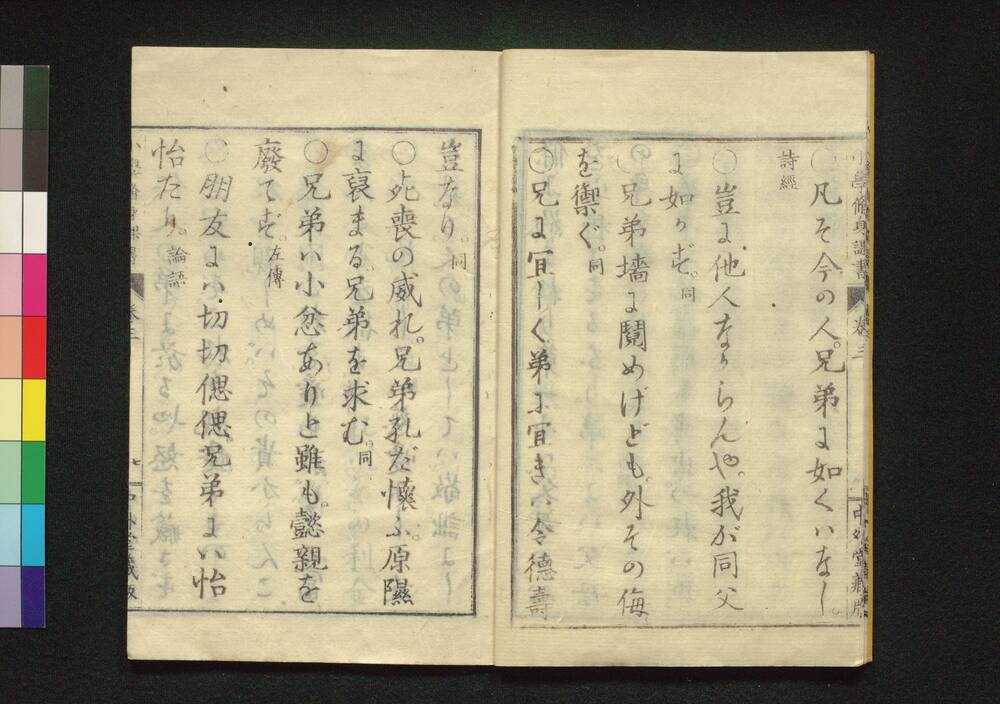 小學修身課書 卷三
中外堂藏版
〇凡そ今の人。兄弟に如くハなし。
詩經
〇豈に他人なからんや。我が同父
に如かず。同
〇兄弟墻に鬩めげども。外その侮
を禦ぐ。同
〇兄に宜しく弟に宜きハ。令德壽
豈なり。同
〇死喪の威れ。兄弟孔だ懷ふ。原隰
に裒まる。兄弟を求む。同
〇兄弟ハ小忿ありと雖も。懿親を
廢てず。左傳
〇朋友にハ切切偲偲兄弟にハ怡
怡たり。論語